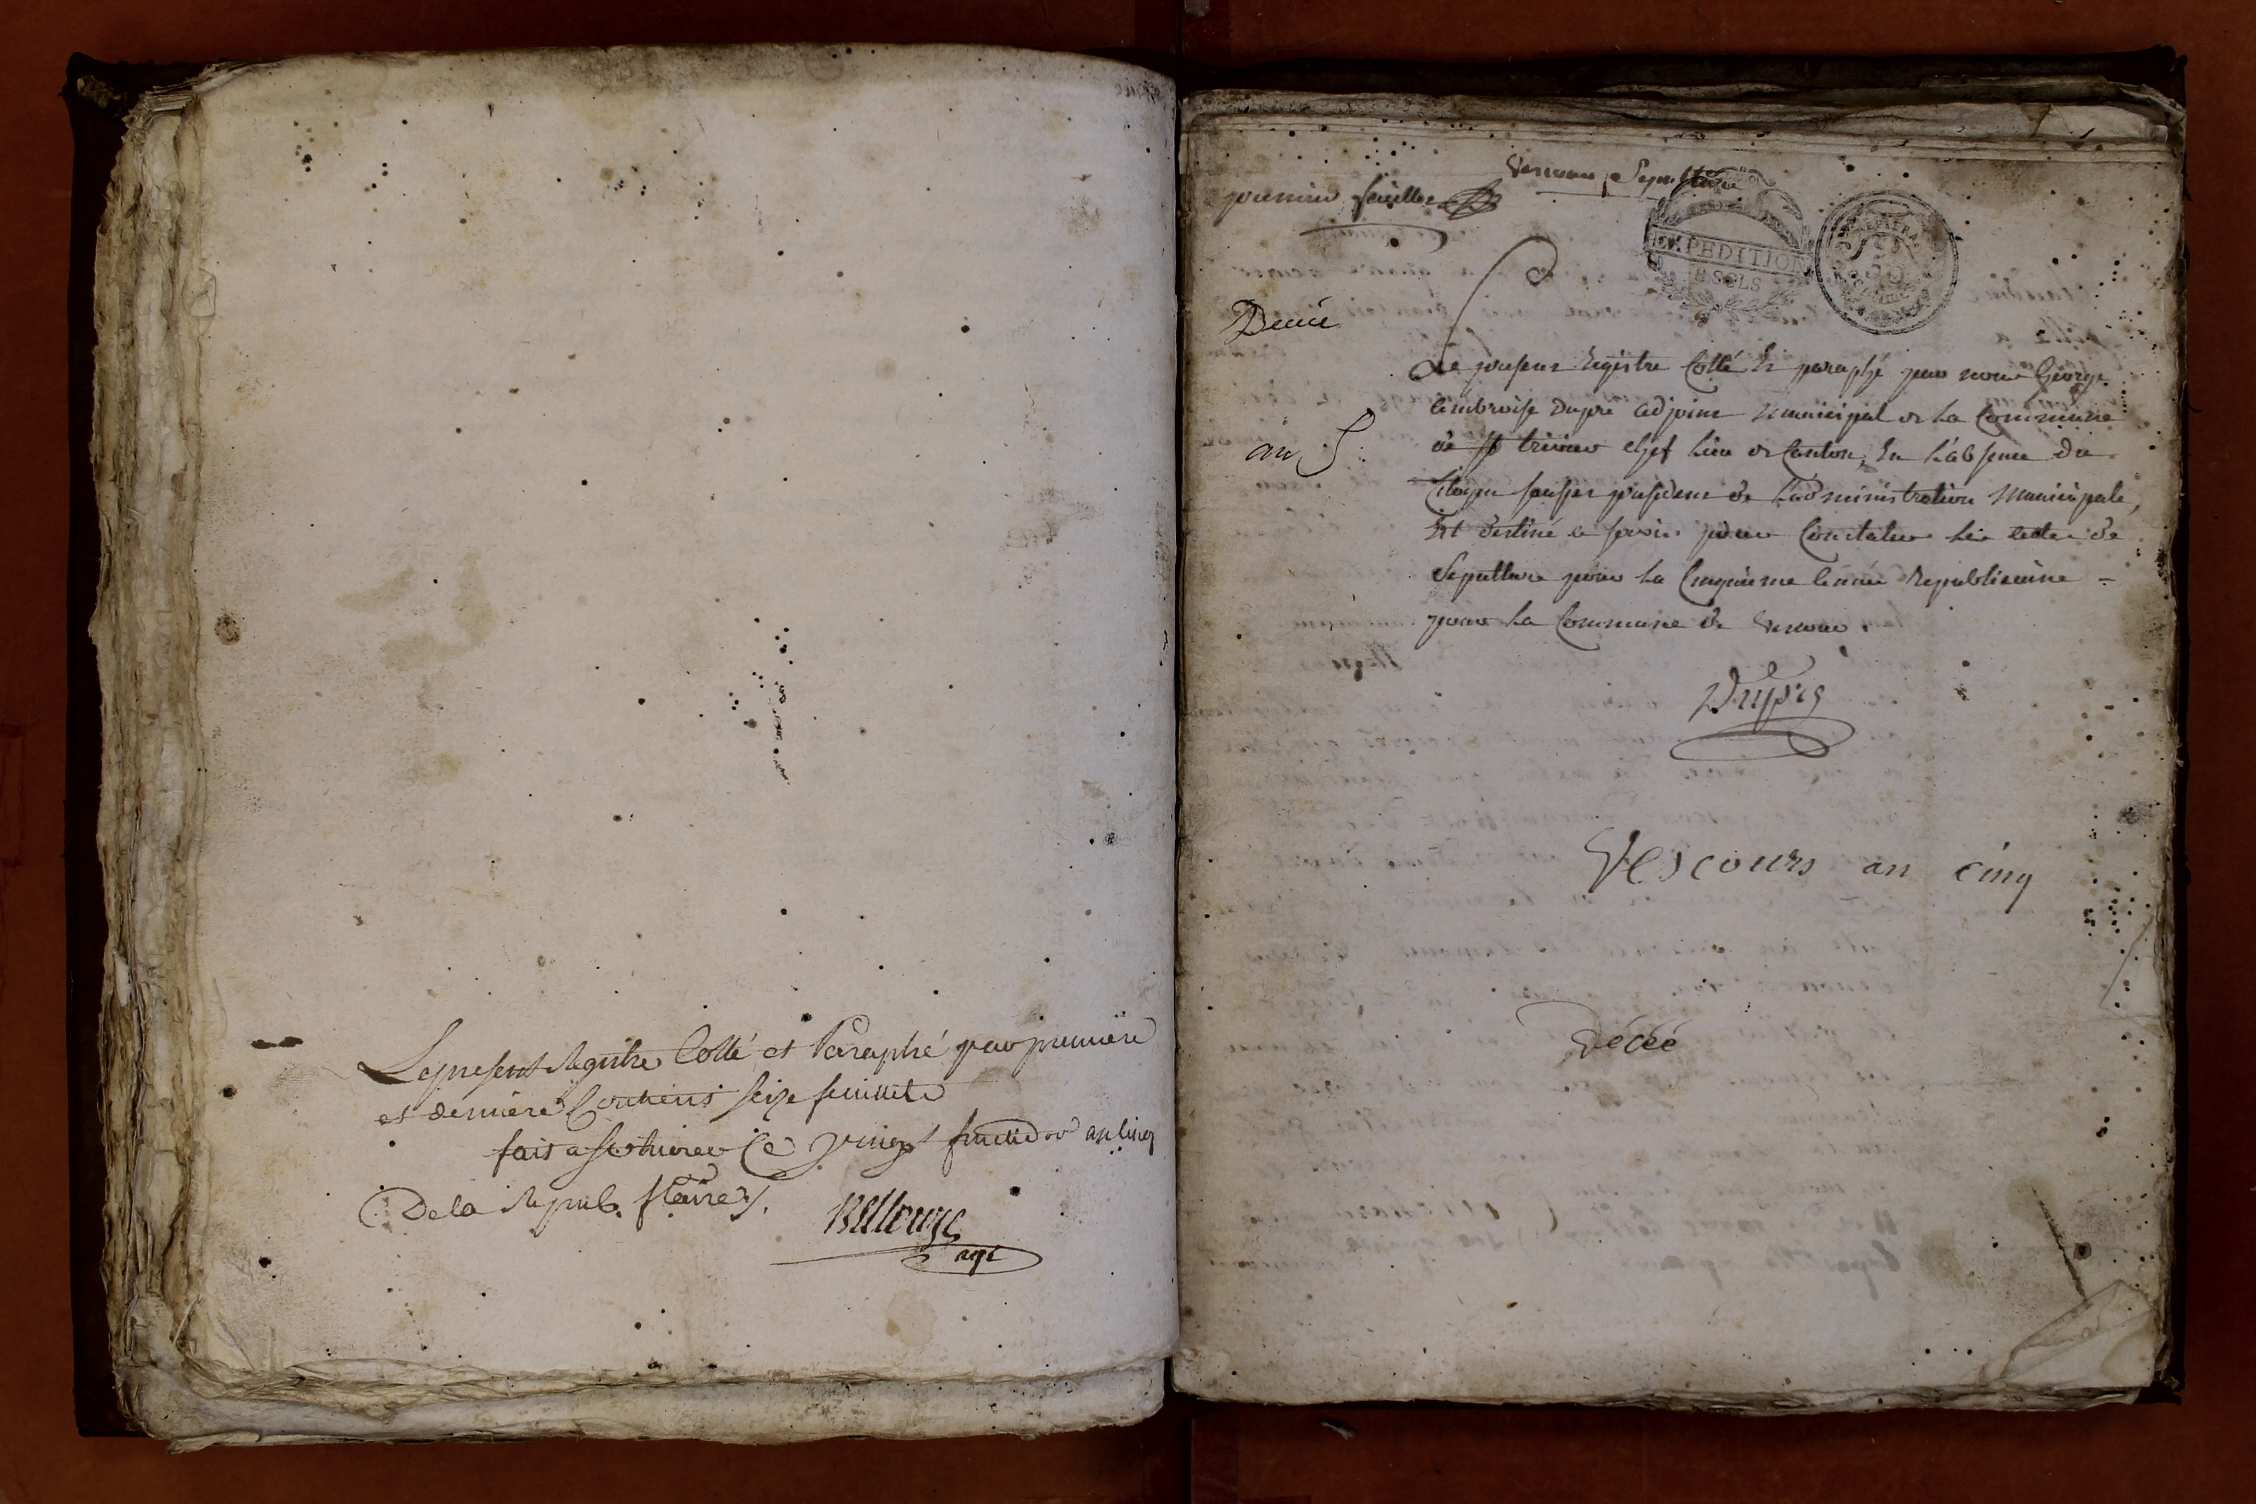 Le present Registre Cotté et Paraphé par premiere
et derniere Contient seize feuillets
fait a St trivier Ce vingt fructidor an cinq
De la Repub. française
Bellouze
agt
Vescour Sepulture
premier feuillet
EXPEDITION
8 SOLS
Decés
an 5
Le present Registre Cotté Et paraphé par nous George
Ambroise Dupré adjoint Municipal de La Commune
de St trivier chef lieu de Canton, En L'absence du
Citoyen president de L'administration Municipale,
Est destiné a servir pour Constater les actes de
Sepulture pour La Cinquieme année Republicaine
pour La Commune de Vescour.
Dupré
Vescours an cinq
Décéé